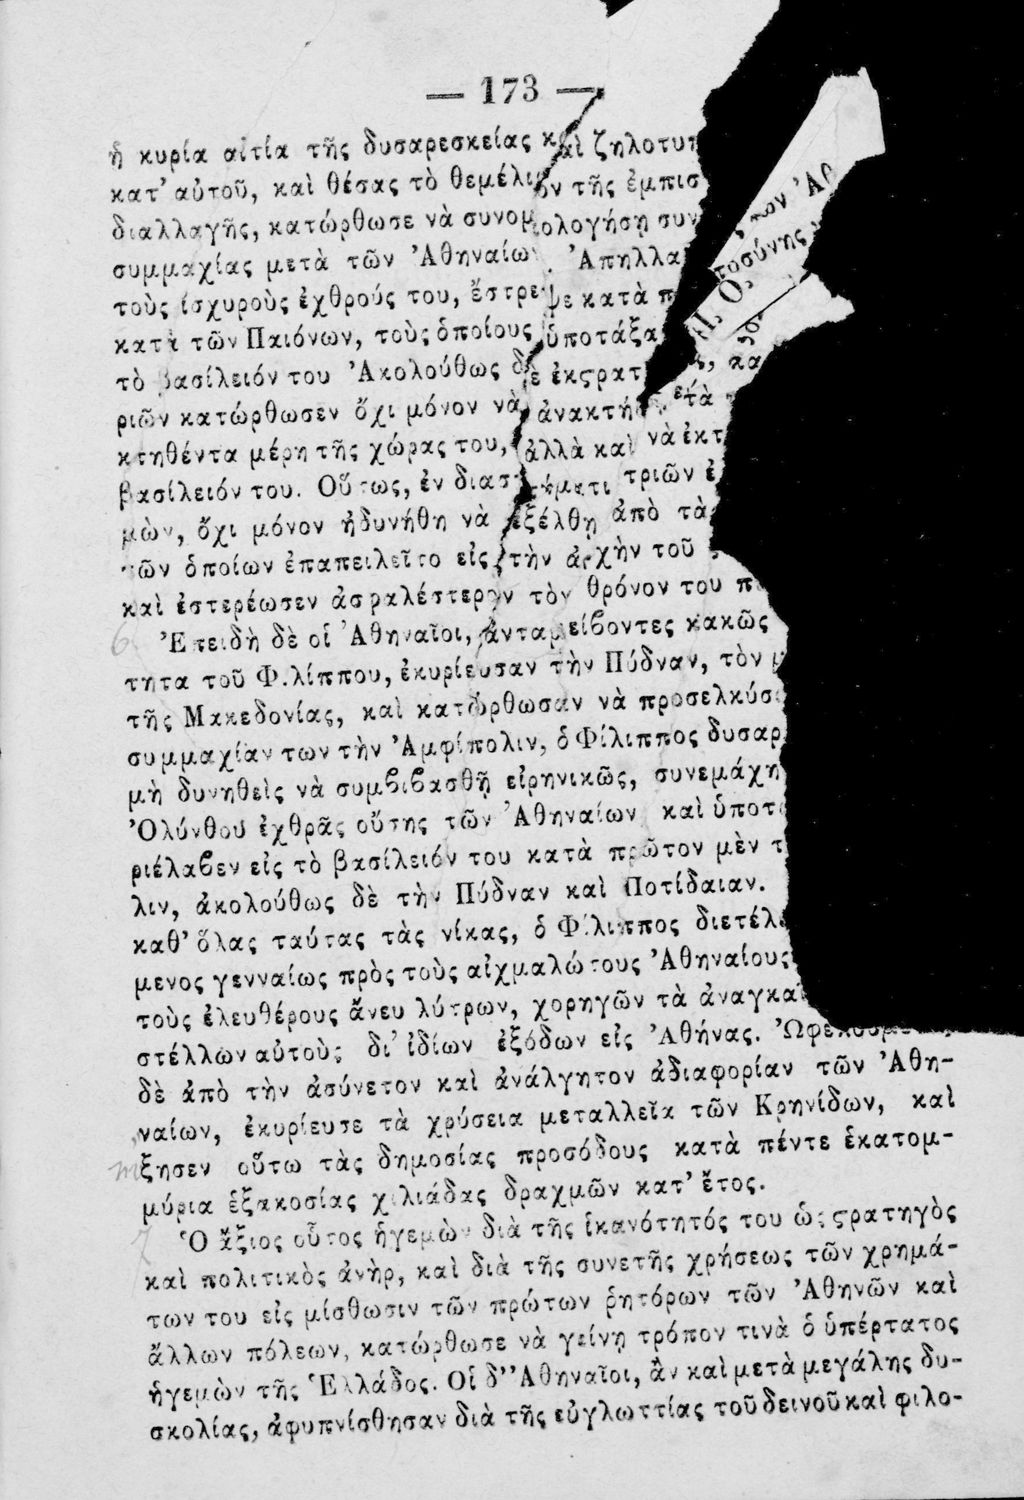 — 173 —
ἡ κυρία αἰτία τῆς δυσαρεσκείας καὶ ζηλοτυπ
κατ' αὐτοῦ, καὶ θέσας τὸ θεμέλιον τῆς ἐμπισ
διαλλαγῆς, κατώρθωσε νὰ συνομολογήσῃ συν
συμμαχίας μετὰ τῶν Ἀθηναίων. Ἀπηλλα
τοὺς ἰσχυροὺς ἐχθρούς του, ἔστρεψε κατὰ π
κατὰ τῶν Παιόνων, τοὺς ὁποίους ὑποτάξα
τὸ βασίλειόν του Ἀκολούθως δὲ ἐκϛρατ
ριῶν κατώρθωσεν ὄχι μόνον νὰ ἀνακτή
κτηθέντα μέρη τῆς χώρας του, ἀλλὰ καὶ νὰ ἐκτ
βασίλειόν του. Οὕτως, ἐν διαστήματι τριῶν ἐ
μῶν, ὄχι μόνον ἠδυνήθη νὰ ἐξέλθῃ ἀπὸ τὰς
τῶν ὁποίων ἐπαπειλεῖτο εἰς τὴν ἀρχὴν τοῦ
καὶ ἐστερέωσεν ἀσφαλέστερον τὸν θρόνον του
Ἐπειδὴ δὲ οἱ Ἀθηναῖοι, ἀνταμείβοντες κακῶς
τητα τοῦ Φιλίππου, ἐκυρίευσαν τὴν Πύδναν, τὸν μ
τῆς Μακεδονίας, καὶ κατώρθωσαν νὰ προσελκύσ
συμμαχίαν των τὴν Ἀμφίπολιν, ὁ Φίλιππος δυσαρ
μὴ δυνηθεὶς νὰ συμβιβασθῇ εἰρηνικῶς, συνεμάχη
Ὀλύνθου ἐχθρᾶς οὔσης τῶν Ἀθηναίων καὶ ὑποτ
ριέλαβεν εἰς τὸ βασίλειόν του κατὰ πρῶτον μὲν τ
λιν, ἀκολούθως δὲ τὴν Πύδναν καὶ Ποτίδαιαν.
καθ' ὅλας ταύτας τὰς νίκας, ὁ Φίλιππος διετέλ
μενος γενναίως πρὸς τοὺς αἰχμαλώτους Ἀθηναίους
τοὺς ἐλευθέρους ἄνευ λύτρων, χορηγῶν τὰ ἀναγκαῖ
στέλλων αὐτοὺς δι' ἰδίων ἐξόδων εἰς Ἀθήνας.
δὲ ἀπὸ τὴν ἀσύνετον καὶ ἀνάλγητον ἀδιαφορίαν τῶν Ἀθη-
ναίων, ἐκυρίευσε τὰ χρύσεια μεταλλεῖα τῶν Κρηνίδων, καὶ
ξησεν οὕτω τὰς δημοσίας προσόδους κατὰ πέντε ἑκατομ-
μύρια ἑξακοσίας χιλιάδας δραχμῶν κατ' ἔτος.
Ὁ ἄξιος οὗτος ἡγεμὼν διὰ τῆς ἱκανότητός του ὡς ϛρατηγὸς
καὶ πολιτικὸς ἀνὴρ, καὶ διὰ τῆς συνετῆς χρήσεως τῶν χρημά-
των του εἰς μίσθωσιν τῶν πρώτων ῥητόρων τῶν Ἀθηνῶν καὶ
ἄλλων πόλεων, κατώρθωσε νὰ γείνῃ τρόπον τινὰ ὁ ὑπέρτατος
ἡγεμὼν τῆς Ἑλλάδος. Οἱ δ' Ἀθηναῖοι, ἂν καὶ μετὰ μεγάλης δυ-
σκολίας, ἀφυπνίσθησαν διὰ τῆς εὐγλωττίας τοῦ δεινοῦ καὶ φιλο-